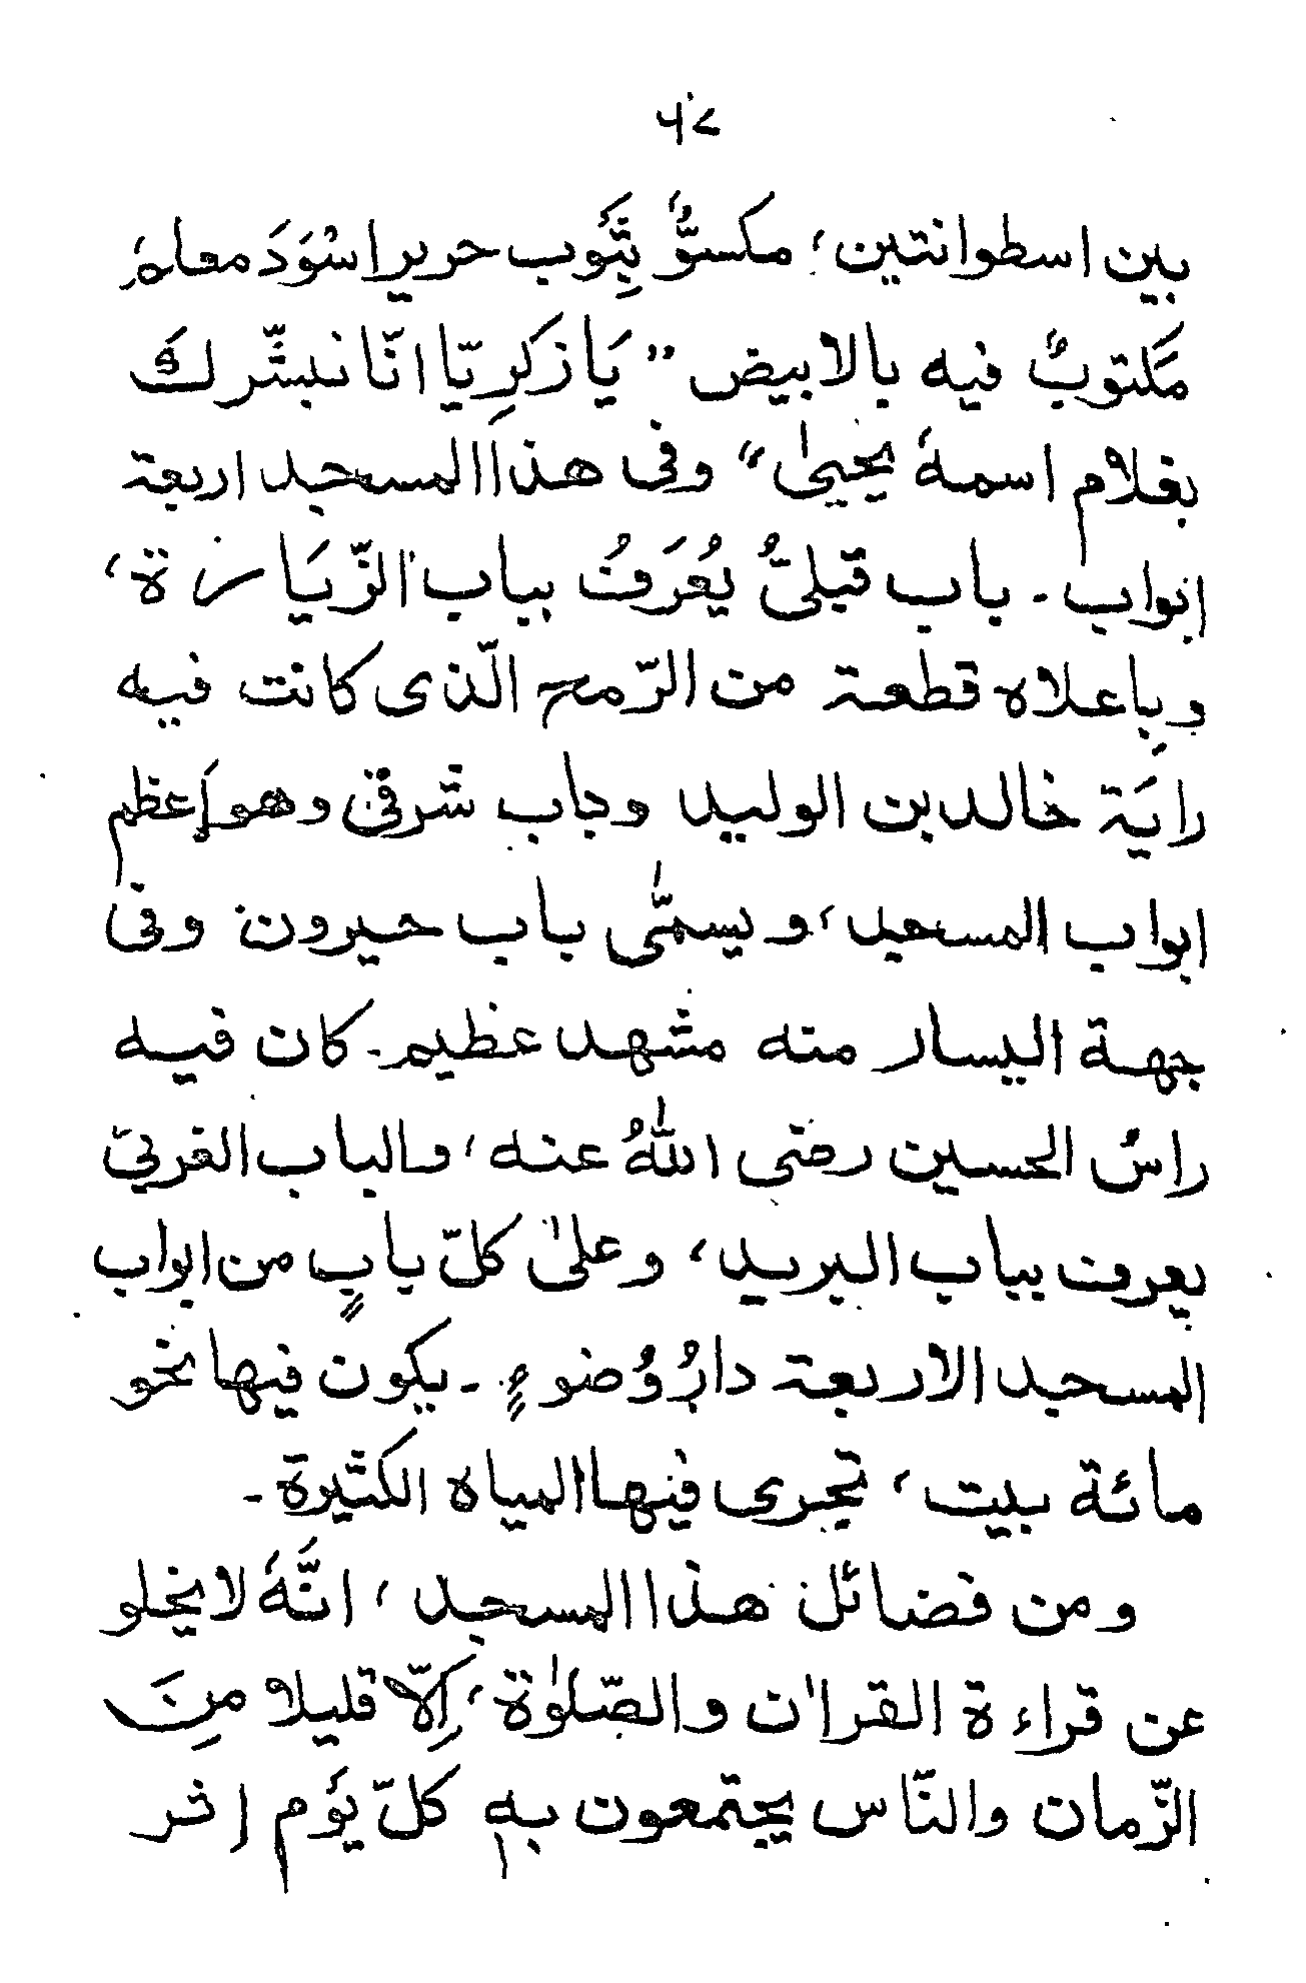 ۶۷
بين اسطوانتين، مكسوٌّ بِثَوب حرير اسْوَدَ معلم،
مَكتوبٌ فيه بالابيض ”يَا زكرِيّا انّا نبشّرك
بغلام اسمهٗ يحيىٰ“ وفى هذا المسجد اربعة
ابواب ۔ باب قبلىٌّ يُعْرَفُ بباب الزّيَارة،
وبِاعلاه قطعة من الرّمح الّذى كانت فيه
رايَة خالد بن الوليد وباب شرقىّ وهو اَعظم
ابواب المسجد، ويسمّٰى باب جيرون وفى
جهة اليسار منه مشهد عظيم ۔ كان فيه
راسُ الحسين رضى اللهُ عنه، والباب الغربىّ
يعرف بباب البريد، وعلىٰ كلّ بابٍ من ابواب
المسجد الاربعة دارُ وُضوءٍ ۔ يكون فيها نحو
مائة بيت، تجرى فيها المياه الكثيرة ۔
ومن فضائل هذا المسجد، انَّهٗ لا يخلو
عن قراءة القراٰن والصّلوٰة، اِلّا قليلا مِنَ
الزّمان والنّاس يجتمعون به كلّ يَوْم اِثر